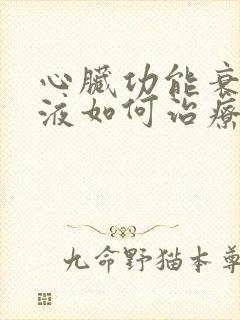 心臟功能衰
液如何治療
九命野猫本尊